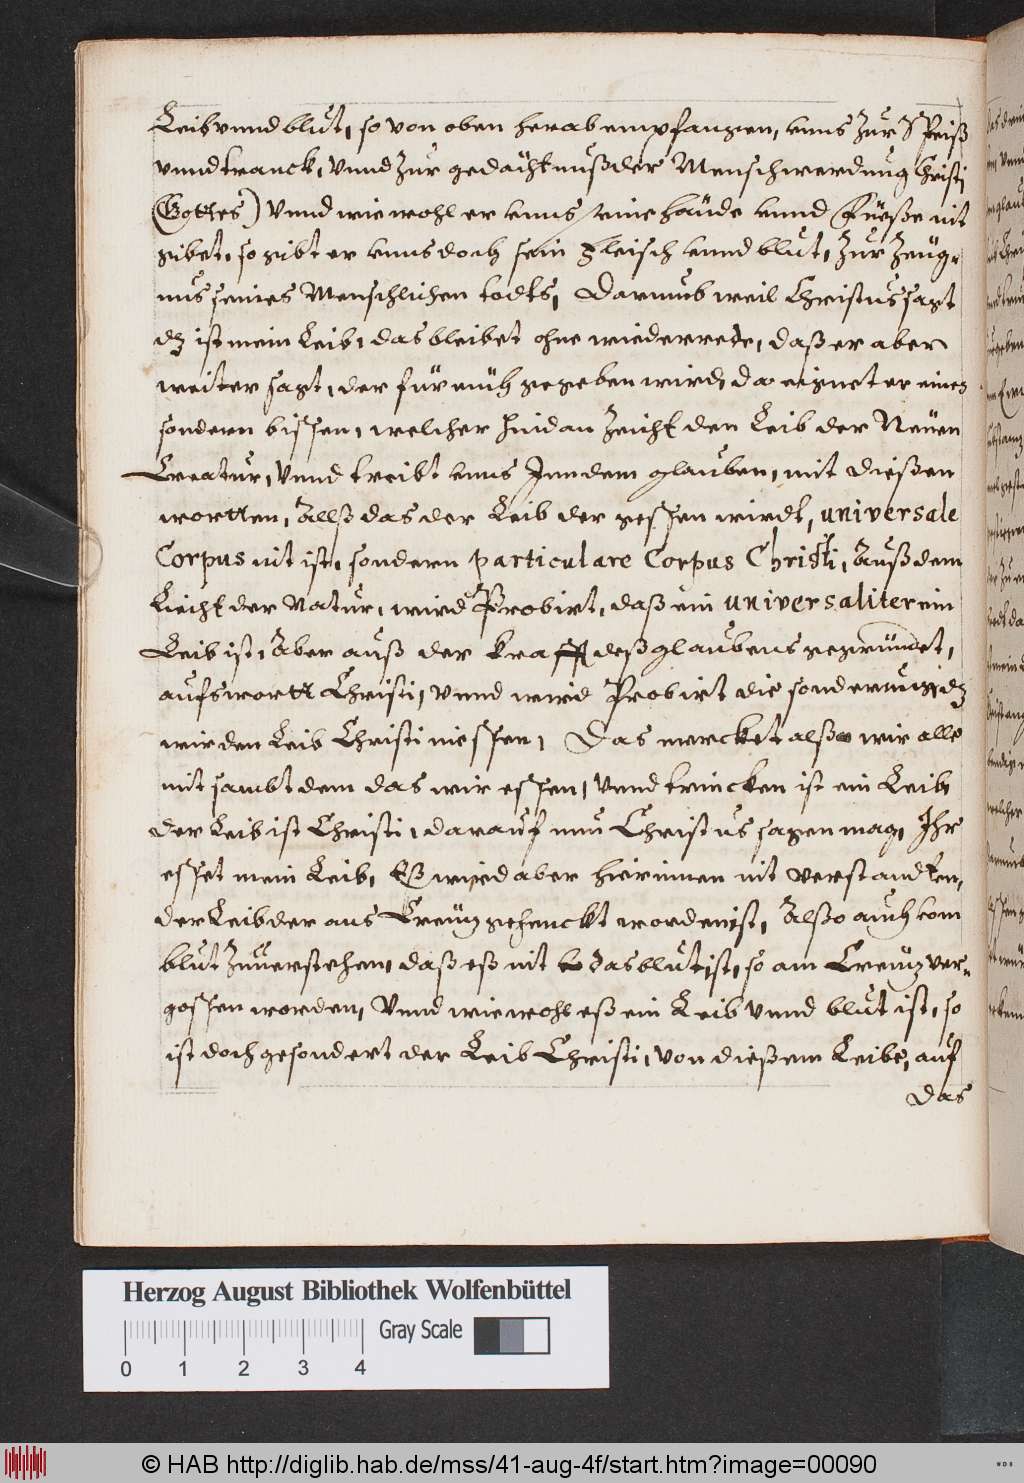 Leib vnnd blut, so von oben herab empfangen, vnns Zur Speiß
vnnd tranck, Vnnd Zur gedächtnuß der Menschwerdung Christi
(Gottes) Vnnd wiewohl er vnns seine hände vnnd Füeße nit
gibet, so gibt er vnns doch sein Fleisch vnnd blut, Zur Zeüg-
nus seines Menschlichen todts, Darumb weil Christus sagt
dz ist mein Leib, das bleibet ohne wiederrede, daß er aber
weiter sagt, der für euch gegeben wird, da eignet er einen
sondern bissen, welcher hindan Zeicht den Leib der Neüen
Creatur, Vnnd treibt vnns Inn dem glauben, mit dießen
wortten, Allß das der Leib der gessen wirdt, universale
Corpus nit ist, sondern particulare Corpus Christi, Auß dem
Liecht der Natur, wird Probirt, daß ein universaliter ein
Leib ist, Aber auß der krafft deß glaubens gegründet,
aufs wortt Christi, Vnnd wird Probirt die sonderung, dz
wir den Leib Christi niessen, Das mercket alßo wir alle
mit sambt dem das wir essen, Vnnd trincken ist ein Leib,
der Leib ist Christi, darauf nun Christus sagen mag, Ihr
esset mein Leib, Eß wird aber hierinnen nit verstandten,
der Leib der ans Creütz gehenckt worden ist, Alßo auch vom
blut Zuuerstehen, daß eß nit das blut ist, so am Creütz ver-
gossen worden, Vnnd wiewohl eß ein Leib Vnnd blut ist, so
ist doch gesondert der Leib Christi, von dießem Leibe, auf
das
Herzog August Bibliothek Wolfenbüttel
Gray Scale
0 1 2 3 4
© HAB http://diglib.hab.de/mss/41-aug-4f/start.htm?image=00090